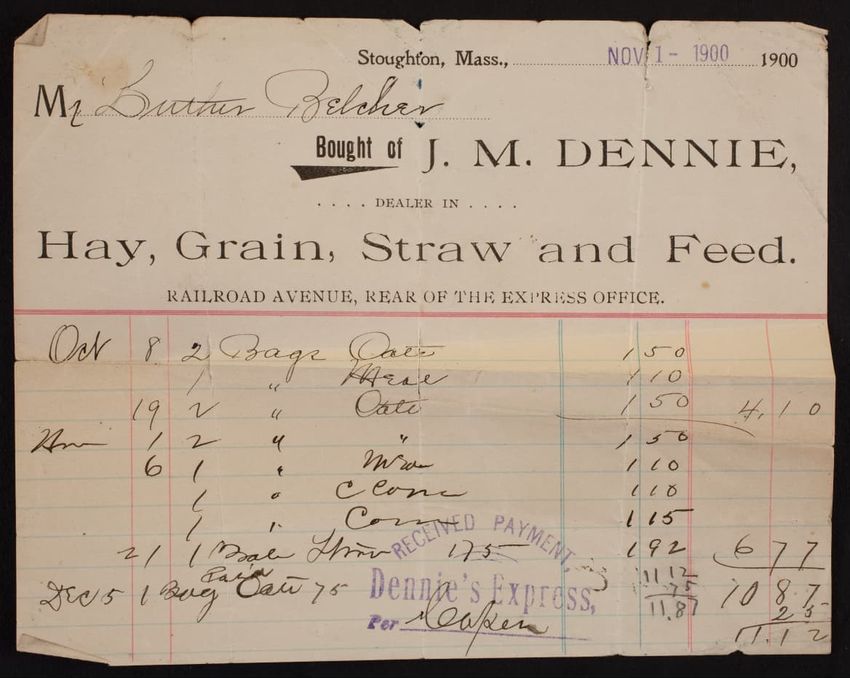 Stoughton, Mass., NOV 1 - 1900 1900
Mr Luther Belcher
Bought of J. M. DENNIE,
. . . . DEALER IN . . . .
Hay, Grain, Straw and Feed.
RAILROAD AVENUE, REAR OF THE EXPRESS OFFICE.
Oct 8 2 Bags Oats 1 50
1 " Meal 1 10
19 2 " Oats 1 50 4.10
Nov 1 2 " " 1 50
6 1 " Meal 1 10
1 " C Corn 1 10
1 " Corn 1 15
21 1 Bale Straw 175 1 92 6 77
RECEIVED PAYMENT,
11.12
Dec 5 1 Bag Oats 75 Paid 75 10 87
Dennie's Express, 11.87 25
Per 11.12